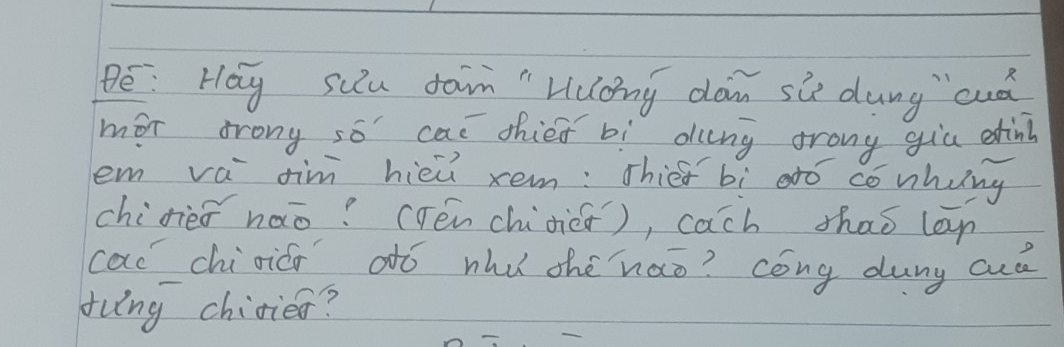 Đề: Hãy sưu tầm "Hướng dẫn sử dụng" của
một trong số các thiết bị dùng trong gia đình
em và tìm hiểu xem: Thiết bị đó có những
chi tiết nào? (Tên chi tiết), cách tháo lắp
các chi tiết đó như thế nào? công dụng của
từng chi tiết?